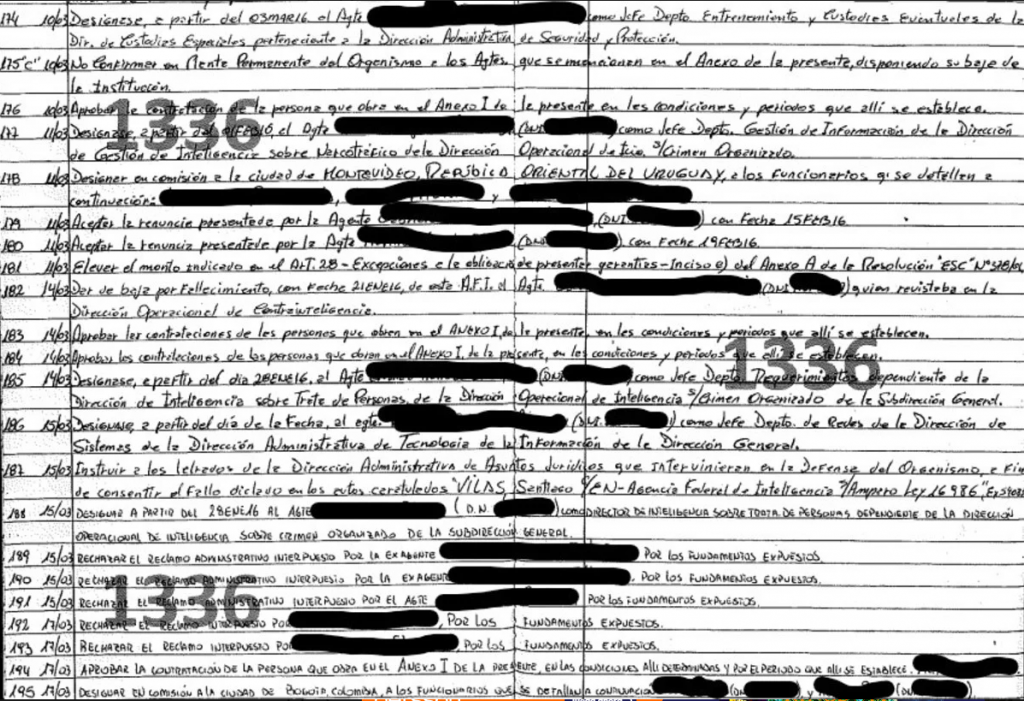 174 10/03 Designese, a partir del 03MAR16, al Agte como Jefe Depto Entrenamiento y Custodias Eventuales de la
Dir. de Custodias Especiales perteneciente a la Dirección Administrativa de Seguridad y Protección.
175"C" 10/03 No Confirmar en Planta Permanente del Organismo a los Agtes. que se mencionan en el Anexo de la presente, disponiendo su baja de
la Institución.
176 10/03 Aprobar la contratación de la persona que obra en el Anexo I de la presente en las condiciones y periodos que allí se establece.
177 11/03 Designase, a partir del 01FEB16, al Agte (DNI como Jefe Depto. Gestión de Información de la Dirección
de Gestión de Inteligencia sobre Narcotráfico de la Dirección Operacional de Icia. s/Crimen Organizado.
178 11/03 Designar en comisión a la ciudad de MONTEVIDEO, REPÚBLICA ORIENTAL DEL URUGUAY, a los funcionarios q' se detallan a
continuación: , y
179 11/03 Aceptar la renuncia presentada por la Agente (DNI ) con Fecha 15FEB16.
180 11/03 Aceptar la renuncia presentada por la Agte (DNI ) con Fecha 19FEB16.
181 11/03 Elevar el monto indicado en el ART. 28 - Excepciones a la obligación de presentar garantías - Inciso e) del Anexo A de la Resolución "ESC" N°
182 14/03 Dar de baja por Fallecimiento, con Fecha 21ENE16, de esta A.F.I. al Agte. (DNI ) quien revistaba en la
Dirección Operacional de Contrainteligencia.
183 14/03 Aprobar las contrataciones de las personas que obran en el ANEXO I, de la presente, en las condiciones y periodos que allí se establecen.
184 14/03 Aprobar las contrataciones de las personas que obran en el ANEXO I, de la presente, en las condiciones y periodos que allí se establecen.
185 14/03 Designase, a partir del día 28ENE16, al Agte (DNI como Jefe Depto Requerimientos dependiente de la
Dirección de Inteligencia sobre Trata de Personas, de la Dirección Operacional de Inteligencia s/Crimen Organizado de la Subdirección General.
186 15/03 Designase, a partir del día de la Fecha, al agte. (DNI. ) como Jefe Depto. de Redes de la Dirección de
Sistemas de la Dirección Administrativa de Tecnología de la Información de la Dirección General.
187 15/03 Instruir a los letrados de la Dirección Administrativa de Asuntos Jurídicos que intervinieran en la Defensa del Organismo, a Fin
de consentir el Fallo dictado en los autos caratulados "VILAS, Santiago c/EN-Agencia Federal de Inteligencia s/Amparo Ley 16986."
188 15/03 DESIGNAR A PARTIR DEL 28ENE16 AL AGTE (D.N. ) COMO DIRECTOR DE INTELIGENCIA SOBRE TRATA DE PERSONAS DEPENDIENTE DE LA DIRECCIÓN
OPERACIONAL DE INTELIGENCIA SOBRE CRIMEN ORGANIZADO DE LA SUBDIRECCIÓN GENERAL.
189 15/03 RECHAZAR EL RECLAMO ADMINISTRATIVO INTERPUESTO POR LA EXAGENTE POR LOS FUNDAMENTOS EXPUESTOS.
190 15/03 RECHAZAR EL RECLAMO ADMINISTRATIVO INTERPUESTO POR LA EXAGENTE . POR LOS FUNDAMENTOS EXPUESTOS.
191 15/03 RECHAZAR EL RECLAMO ADMINISTRATIVO INTERPUESTO POR EL AGTE POR LOS FUNDAMENTOS EXPUESTOS.
192 17/03 RECHAZAR EL RECLAMO INTERPUESTO POR , POR LOS FUNDAMENTOS EXPUESTOS.
193 17/03 RECHAZAR EL RECLAMO INTERPUESTO POR POR LOS FUNDAMENTOS EXPUESTOS.
194 17/03 APROBAR LA CONTRATACIÓN DE LA PERSONA QUE OBRA EN EL ANEXO I DE LA PRESENTE, EN LAS CONDICIONES ALLÍ DETERMINADAS Y POR EL PERIODO QUE ALLÍ SE ESTABLECE.
195 17/03 DESIGNAR EN COMISIÓN A LA CIUDAD DE BOGOTA, COLOMBIA, A LOS FUNCIONARIOS QUE SE DETALLAN A CONTINUACION ( ), Y (
1336
1336
1336